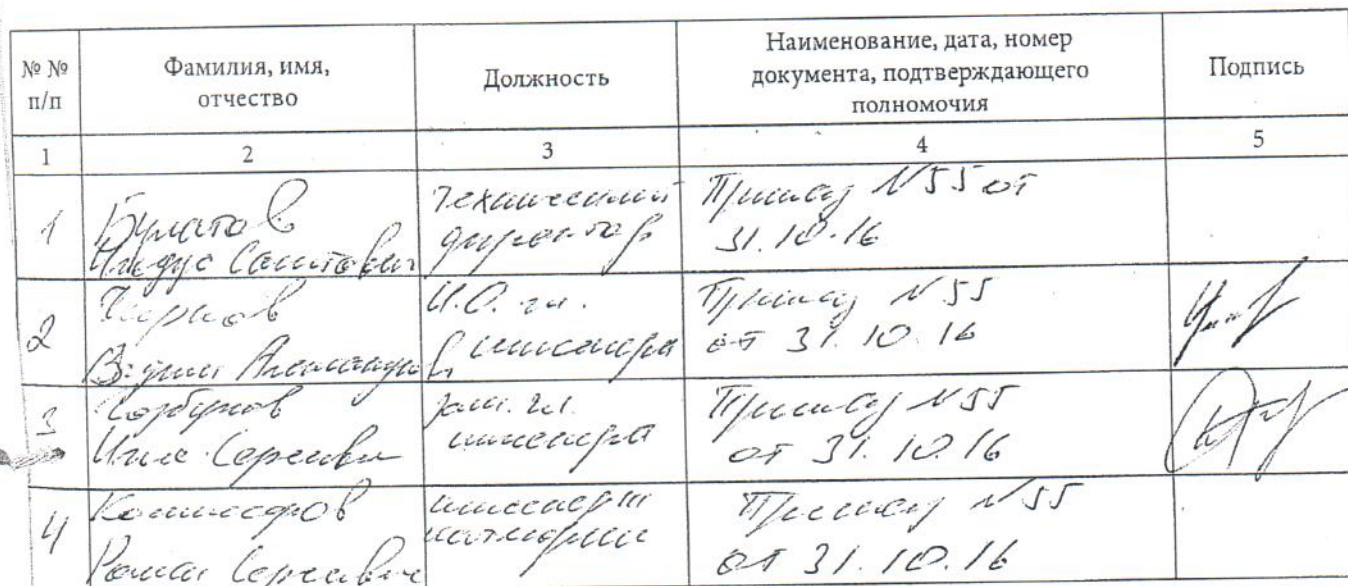 № №
п/п
Фамилия, имя,
отчество
Должность
Наименование, дата, номер
документа, подтверждающего
полномочия
Подпись
1
2
3
4
5
1
Булатов
Ильдус Саитович
технический
директор
Приказ N 55 от
31.10.16
2
Чернов
Вадим Александров
И.О. гл.
инженера
Приказ N 55
от 31.10.16
3
Горбунов
Илья Сергеевич
зам. гл.
инженера
Приказ N 55
от 31.10.16
4
Комиссаров
Роман Сергеевич
инженер III
категории
Приказ N 55
от 31.10.16